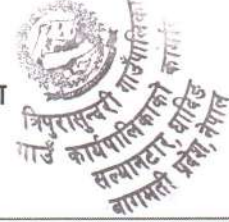 त्रिपुरासुन्दरी गाउँपालिका
गाउँ कार्यपालिकाको कार्यालय
सल्यानटार, धादिङ
बागमती प्रदेश, नेपाल